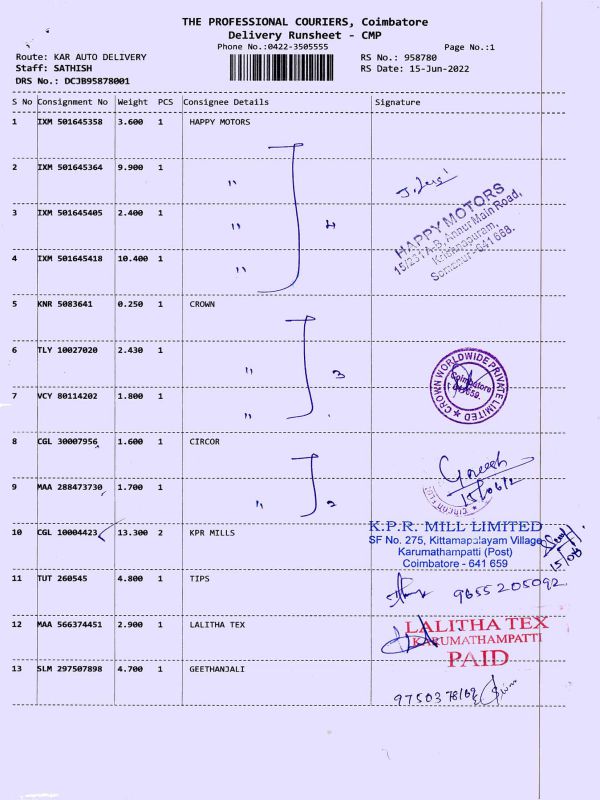 THE PROFESSIONAL COURIERS, Coimbatore
Delivery Runsheet - CMP
Phone No.:0422-3505555 Page No.:1
Route: KAR AUTO DELIVERY RS No.: 958780
Staff: SATHISH RS Date: 15-Jun-2022
DRS No.: DCJB95878001
S No Consignment No Weight PCS Consignee Details Signature
1 IXM 501645358 3.600 1 HAPPY MOTORS
2 IXM 501645364 9.900 1 "
3 IXM 501645405 2.400 1 " 4
4 IXM 501645418 10.400 1 "
HAPPY MOTORS
15/231 A-B, Annur Main Road,
Krishnapuram,
Somanur - 641 668.
5 KNR 5083641 0.250 1 CROWN
6 TLY 10027020 2.430 1 " 3
7 VCY 80114202 1.800 1 "
CROWN WORLDWIDE PRIVATE LIMITED
Coimbatore
8 CGL 30007956 1.600 1 CIRCOR
9 MAA 288473730 1.700 1 " 2
10 CGL 10004423 13.300 2 KPR MILLS
K.P.R. MILL LIMITED
SF No. 275, Kittampalayam Village
Karumathampatti (Post)
Coimbatore - 641 659
15/06
11 TUT 260545 4.800 1 TIPS
9655205092
12 MAA 566374451 2.900 1 LALITHA TEX
LALITHA TEX
KARUMATHAMPATTI
PAID
13 SLM 297507898 4.700 1 GEETHANJALI